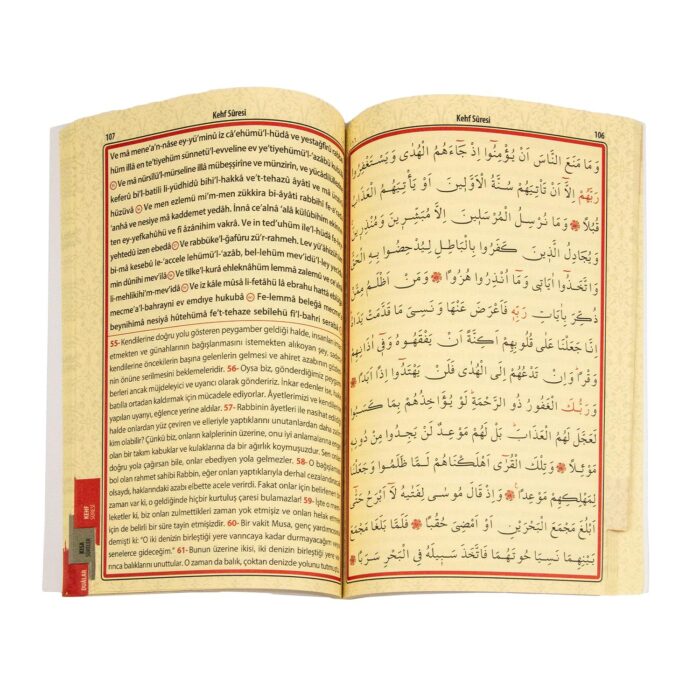 Kehf Sûresi
106
وَمَا مَنَعَ النَّاسَ اَنْ يُؤْمِنُٓوا اِذْ جَٓاءَهُمُ الْهُدٰى وَيَسْتَغْفِرُوا
رَبَّهُمْ اِلَّٓا اَنْ تَأْتِيَهُمْ سُنَّةُ الْاَوَّلٖينَ اَوْ يَأْتِيَهُمُ الْعَذَابُ
قُبُلًا وَمَا نُرْسِلُ الْمُرْسَلٖينَ اِلَّا مُبَشِّرٖينَ وَمُنْذِرٖينَ
وَيُجَادِلُ الَّذٖينَ كَفَرُوا بِالْبَاطِلِ لِيُدْحِضُوا بِهِ الْحَقَّ
وَاتَّخَذُٓوا اٰيَاتٖى وَمَٓا اُنْذِرُوا هُزُوًا وَمَنْ اَظْلَمُ مِمَّنْ
ذُكِّرَ بِاٰيَاتِ رَبِّهٖ فَاَعْرَضَ عَنْهَا وَنَسِىَ مَا قَدَّمَتْ يَدَاهُ
اِنَّا جَعَلْنَا عَلٰى قُلُوبِهِمْ اَكِنَّةً اَنْ يَفْقَهُوهُ وَفٖٓى اٰذَانِهِمْ
وَقْرًا وَاِنْ تَدْعُهُمْ اِلَى الْهُدٰى فَلَنْ يَهْتَدُٓوا اِذًا اَبَدًا
وَرَبُّكَ الْغَفُورُ ذُو الرَّحْمَةِ لَوْ يُؤَاخِذُهُمْ بِمَا كَسَبُوا
لَعَجَّلَ لَهُمُ الْعَذَابَ بَلْ لَهُمْ مَوْعِدٌ لَنْ يَجِدُوا مِنْ دُونِهٖ
مَوْئِلًا وَتِلْكَ الْقُرٰٓى اَهْلَكْنَاهُمْ لَمَّا ظَلَمُوا وَجَعَلْنَا
لِمَهْلِكِهِمْ مَوْعِدًا وَاِذْ قَالَ مُوسٰى لِفَتٰيهُ لَٓا اَبْرَحُ حَتّٰٓى
اَبْلُغَ مَجْمَعَ الْبَحْرَيْنِ اَوْ اَمْضِىَ حُقُبًا فَلَمَّا بَلَغَا مَجْمَعَ
بَيْنِهِمَا نَسِيَا حُوتَهُمَا فَاتَّخَذَ سَبٖيلَهُ فِى الْبَحْرِ سَرَبًا
107
Kehf Sûresi
Ve mâ mene'a'n-nâse ey-yü'minû iz câ'ehümü'l-hüdâ ve yestağfirû
hüm illâ en te'tiyehüm sünnetü'l-evveline ev ye'tiyehümü'l-'azâbü
Ve mâ nürsilü'l-mürseline illâ mübeşşirine ve münzirin, ve yücâdilü
keferû bi'l-batili li-yüdhidû bihi'l-hakka ve't-tehazû âyâti ve mâ
hüzüvâ Ve men ezlemü mi'm-men zükkira bi-âyâti rabbihi fe-a'
'anhâ ve nesiye mâ kaddemet yedâh. İnnâ ce'alnâ 'alâ külûbihim
ten ey-yefkahûhü ve fi âzânihim vakrâ. Ve in ted'uhüm ile'l-hüdâ fe-
yehtedû izen ebedâ Ve rabbüke'l-ğafûru zü'r-rahmeh. Lev yü'âhizü
bi-mâ kesebû le-'accele lehümü'l-'azâb, bel-lehüm mev'idü'l-ley
min dûnihi mev'ilâ Ve tilke'l-kurâ ehleknâhüm lemmâ zalemû ve
li-mehlikihi'm-mev'idâ Ve iz kâle mûsâ li-fetâhü lâ ebrahu hattâ
mecme'a'l-bahrayni ev emdiye hukubâ Fe-lemmâ beleğâ
beynihimâ nesiyâ hûtehümâ fe't-tehaze sebilehü fi'l-bahri serabâ
55- Kendilerine doğru yolu gösteren peygamber geldiği halde, insanları
etmekten ve günahlarının bağışlanmasını istemekten alıkoyan şey,
kendilerine öncekilerin başına gelenlerin gelmesi ve ahiret azabının
nin önüne serilmesini beklemeleridir. 56- Oysa biz, gönderdiğimiz
berleri ancak müjdeleyici ve uyarıcı olarak göndeririz. İnkar edenler ise,
batılla ortadan kaldırmak için mücadele ediyorlar. Âyetlerimizi ve kendilerine
yapılan uyarıyı, eğlence yerine aldılar. 57- Rabbinin âyetleri ile nasihat
halde onlardan yüz çeviren ve elleriyle yaptıklarını unutanlardan daha
kim olabilir? Çünkü biz, onların kalplerinin üzerine, onu iyi anlamalarına
olan bir takım kabuklar ve kulaklarına da bir ağırlık koymuşuzdur. Sen
doğru yola çağırsan bile, onlar ebediyen yola gelmezler. 58- O bağışlaması
bol olan rahmet sahibi Rabbin, eğer onları yaptıklarıyla derhal
olsaydı, haklarındaki azabı elbette acele verirdi. Fakat onlar için belirlenen
zaman var ki, o geldiğinde hiçbir kurtuluş çaresi bulamazlar! 59- İşte o
leketler ki, biz onları zulmettikleri zaman yok etmişiz ve onları helak
için de belirli bir süre tayin etmişizdir. 60- Bir vakit Musa, genç yardımcısına
demişti ki: "O iki denizin birleştiği yere varıncaya kadar durmayacağım
senelerce gideceğim." 61- Bunun üzerine ikisi, iki denizin birleştiği yere
rınca balıklarını unuttular. O zaman da balık, çoktan denizde yolunu
KEHF
SÛRESİ
KISA
SÛRELER
DUALAR